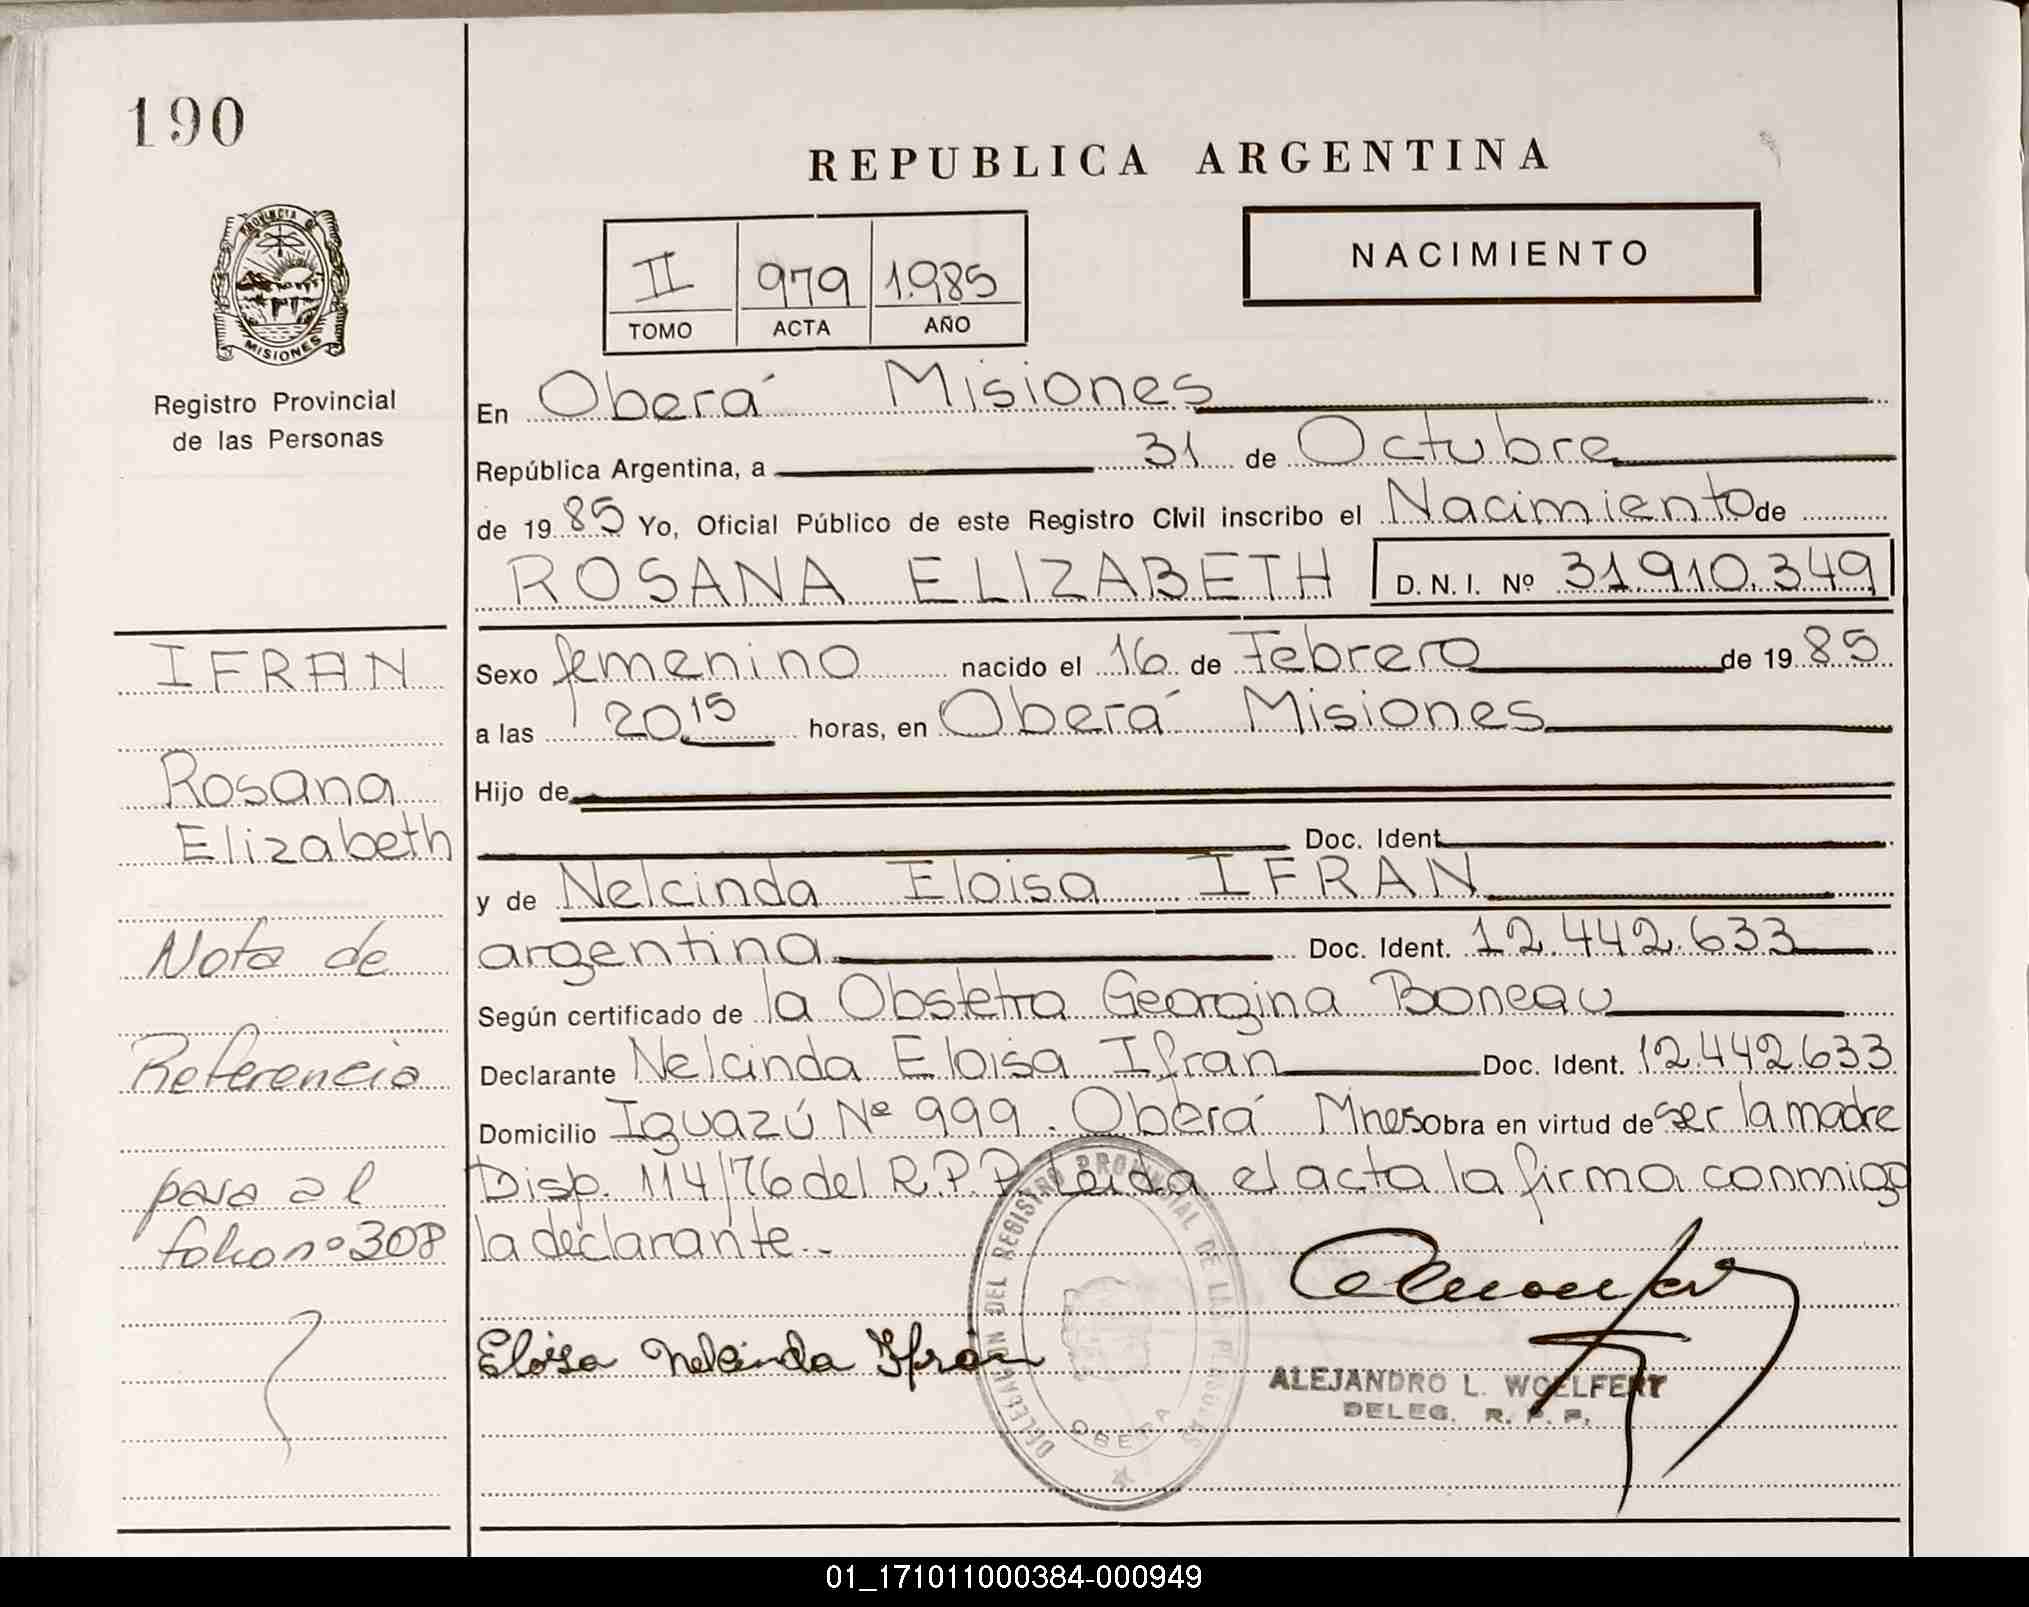 190
REPUBLICA ARGENTINA
PROVINCIA DE
MISIONES
Registro Provincial
de las Personas
II 979 1.985
TOMO ACTA AÑO
NACIMIENTO
En Oberá Misiones
República Argentina, a 31 de Octubre
de 1985 Yo, Oficial Público de este Registro Civil inscribo el Nacimiento de
ROSANA ELIZABETH D.N.I. Nº 31.910.349
Sexo femenino nacido el 16 de Febrero de 1985
a las 20,15 horas, en Oberá Misiones
Hijo de
Doc. Ident.
y de Nelcinda Eloisa IFRAN
argentina Doc. Ident. 12.442.633
Según certificado de la Obstetra Georgina Boneau
Declarante Nelcinda Eloisa Ifran Doc. Ident. 12.442.633
Domicilio Iguazú Nº 999. Oberá Mnes obra en virtud de ser la madre
Disp. 114/76 del R.P.P. Leida el acta la firma conmigo
la declarante.-
IFRAN
Rosana
Elizabeth
Nota de
Referencia
pasa al
folio nº 308
Eloisa Nelcinda Ifran
DELEGACION DEL REGISTRO PROVINCIAL DE LAS PERSONAS
OBERA
ALEJANDRO L. WOELFERT
DELEG. R. P. P.
01_171011000384-000949